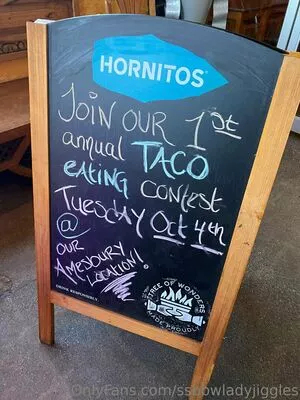 HORNITOS
JOIN OUR 1st
annual TACO
eating contest
Tuesday Oct 4th
@
OUR
AMESBURY
LOCATION!
DRINK RESPONSIBLY
TREE OF WONDERS
25
MADE PROUDLY
OnlyFans.com/ssbbwladyjiggles